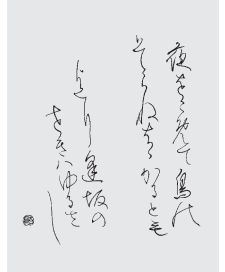 夜をこめて鳥の
そらねはかるとも
よに逢坂の
せきはゆるさし